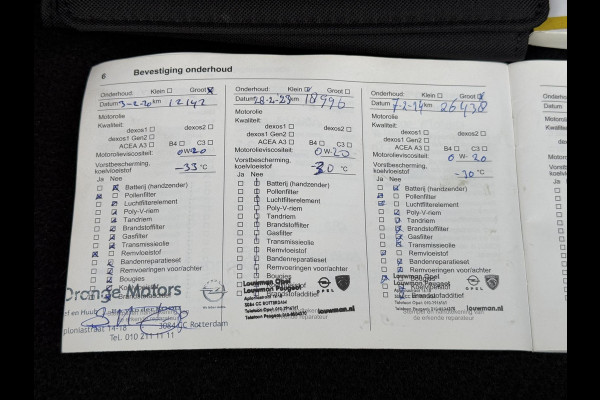 6 Bevestiging onderhoud
Onderhoud: Klein Groot
Datum 3-2-20 km 12142
Motorolie
Kwaliteit:
dexos1 dexos2
dexos1 Gen2
ACEA A3 B4 C3
Motorolieviscositeit: 0W-20
Vorstbescherming, koelvloeistof -33 °C
Ja Nee
Batterij (handzender)
Pollenfilter
Luchtfilterelement
Poly-V-riem
Tandriem
Brandstoffilter
Gasfilter
Transmissieolie
Remvloeistof
Bandenreparatieset
Remvoeringen voor/achter
Bougies
Orange Motors
3084 CC Rotterdam
Tel. 010 211 11 11
Onderhoud: Klein Groot
Datum 28-2-23 km 18996
Motorolie
Kwaliteit:
dexos1 dexos2
dexos1 Gen2
ACEA A3 B4 C3
Motorolieviscositeit: 0W-20
Vorstbescherming, koelvloeistof -30 °C
Ja Nee
Batterij (handzender)
Pollenfilter
Luchtfilterelement
Poly-V-riem
Tandriem
Brandstoffilter
Gasfilter
Transmissieolie
Remvloeistof
Bandenreparatieset
Remvoeringen voor/achter
Bougies
Louwman Opel
Louwman Peugeot
OPEL
3084 CC ROTTERDAM
louwman.nl
Onderhoud: Klein Groot
Datum 7-2-24 km 26438
Motorolie
Kwaliteit:
dexos1 dexos2
dexos1 Gen2
ACEA A3 B4 C3
Motorolieviscositeit: 0W-20
Vorstbescherming, koelvloeistof -30 °C
Ja Nee
Batterij (handzender)
Pollenfilter
Luchtfilterelement
Poly-V-riem
Tandriem
Brandstoffilter
Gasfilter
Transmissieolie
Remvloeistof
Bandenreparatieset
Remvoeringen voor/achter
Bougies
Louwman Opel
Louwman Peugeot
OPEL
louwman.nl
de erkende reparateur